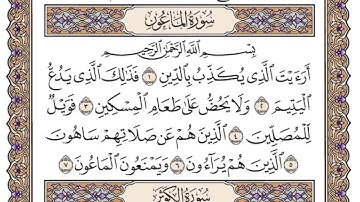 سُورَةُ المَاعُونِ
بِسْمِ اللَّهِ الرَّحْمَٰنِ الرَّحِيمِ
أَرَءَيْتَ الَّذِى يُكَذِّبُ بِالدِّينِ ١ فَذَٰلِكَ الَّذِى يَدُعُّ
الْيَتِيمَ ٢ وَلَا يَحُضُّ عَلَىٰ طَعَامِ الْمِسْكِينِ ٣ فَوَيْلٌ
لِّلْمُصَلِّينَ ٤ الَّذِينَ هُمْ عَن صَلَاتِهِمْ سَاهُونَ
٥ الَّذِينَ هُمْ يُرَآءُونَ ٦ وَيَمْنَعُونَ الْمَاعُونَ ٧
سُورَةُ الكَوْثَرِ